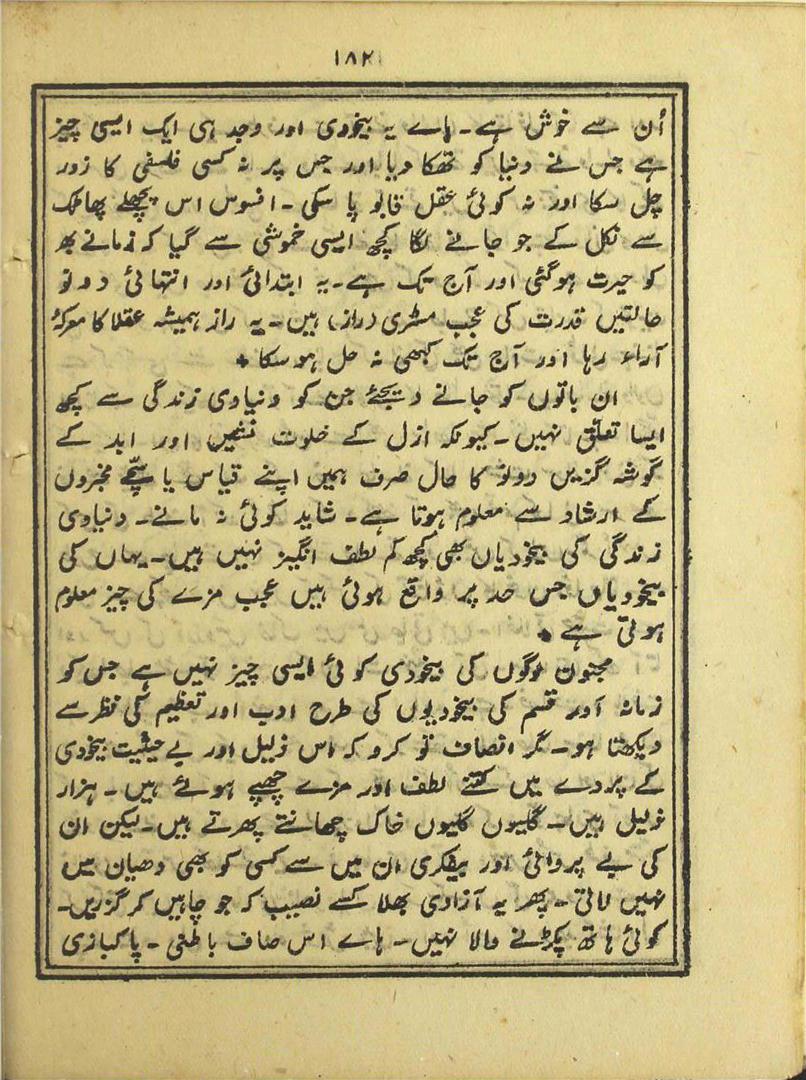 ۱۸۲
اُن سے خوش ہے۔ ہاے یہ بیخودی اور وجد ہی ایک ایسی چیز
ہے جس نے دنیا کو تھکا دیا اور جس پر نہ کسی فلسفی کا زور
چل سکا اور نہ کوئی عقل قابو پا سکی۔ افسوس اس پچھلے پھاٹک
سے نکل کے جو جانے لگا کچھ ایسی خموشی سے گیا کہ زمانے بھر
کو حیرت ہوگئی اور آج تک ہے۔ یہ ابتدائی اور انتہائی دونو
حالتیں قدرت کی عجب مسٹری (راز) ہیں۔ یہ راز ہمیشہ عقلا کا معرکۂ
آراء رہا اور آج تک کبھی نہ حل ہو سکا ٭
ان باتوں کو جانے دیجئے جن کو دنیاوی زندگی سے کچھ
ایسا تعلق نہیں۔ کیونکہ ازل کے خلوت نشیں اور ابد کے
گوشہ گزیں دونو کا حال صرف ہمیں اپنے قیاس یا سچّے مخبروں
کے ارشاد سے معلوم ہوتا ہے۔ شاید کوئی نہ مانے۔ دنیاوی
زندگی کی بیخودیاں بھی کچھ کم لطف انگیز نہیں ہیں۔ یہاں کی
بیخودیاں جس حد پر واقع ہوئی ہیں عجب مزے کی چیز معلوم
ہوتی ہے ٭
مجنون لوگوں کی بیخودی کوئی ایسی چیز نہیں ہے جس کو
زمانہ اور قسم کی بیخودیوں کی طرح ادب اور تعظیم کی نظر سے
دیکھتا ہو۔ مگر انصاف تو کرو کہ اس ذلیل اور بے حیثیت بیخودی
کے پردے میں کتنے لطف اور مزے چھپے ہوئے ہیں۔ ہزار
ذلیل ہیں۔ گلیوں گلیوں خاک چھانتے پھرتے ہیں۔ لیکن ان
کی بے پروائی اور بیفکری ان میں سے کسی کو بھی دھیان میں
نہیں لاتی۔ پھر یہ آزادی بھلا کسے نصیب کہ جو چاہیں کر گزریں۔
کوئی ہاتھ پکڑنے والا نہیں۔ ہاے اس صاف باطنی۔ پاکبازی